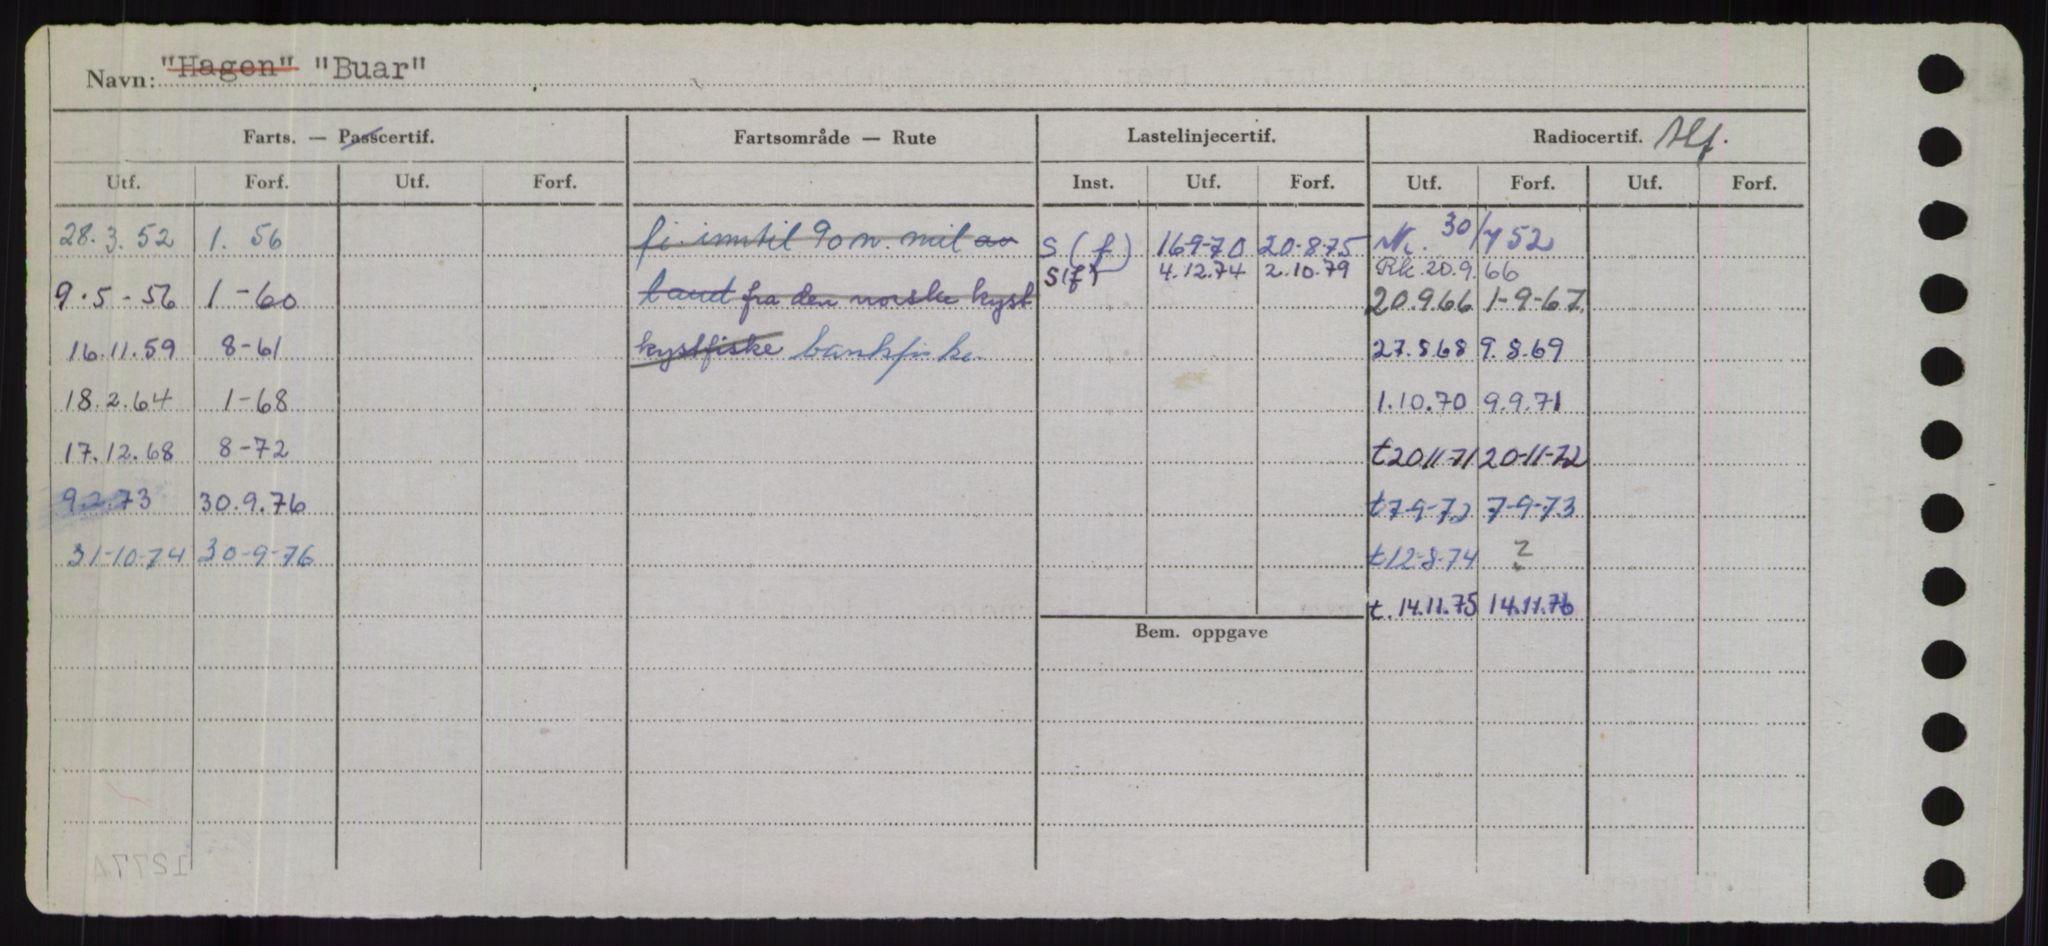 Navn: "Hagen" "Buar"
Farts. — Passcertif. Fartsområde — Rute Lastelinjecertif. Radiocertif. tlf.
Utf. Forf. Utf. Forf. Inst. Utf. Forf. Utf. Forf. Utf. Forf.
28.3.52 1. 56 fi. inntil 90 n. mil av S (f) 16-9-70 20-8-75 30/4 52
S(f) 4.12.74 2.10.79 Rk. 20.9.66
9.5-56 1-60 land fra den norske kyst 20.9.66 1-9-67
16.11.59 8-61 kystfiske bankfiske 27.8.68 9.8.69
18.2.64 1-68 1.10.70 9.9.71
17.12.68 8-72 t20-11-71 20-11-72
9.2.73 30.9.76 t7-9-72 7-9-73
31-10-74 30-9-76 t12-8-74 ?
t. 14.11.75 14.11.76
Bem. oppgave